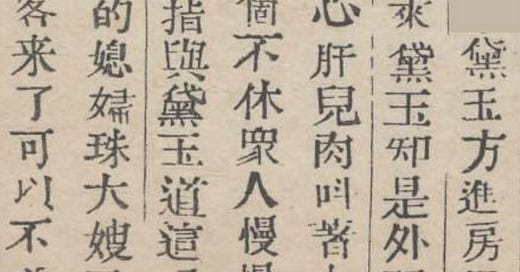 黛玉方進房
來黛玉知是外
心肝兒肉叫著
個不休眾人慢慢
指與黛玉道這
的媳婦珠大嫂
客来了可以不